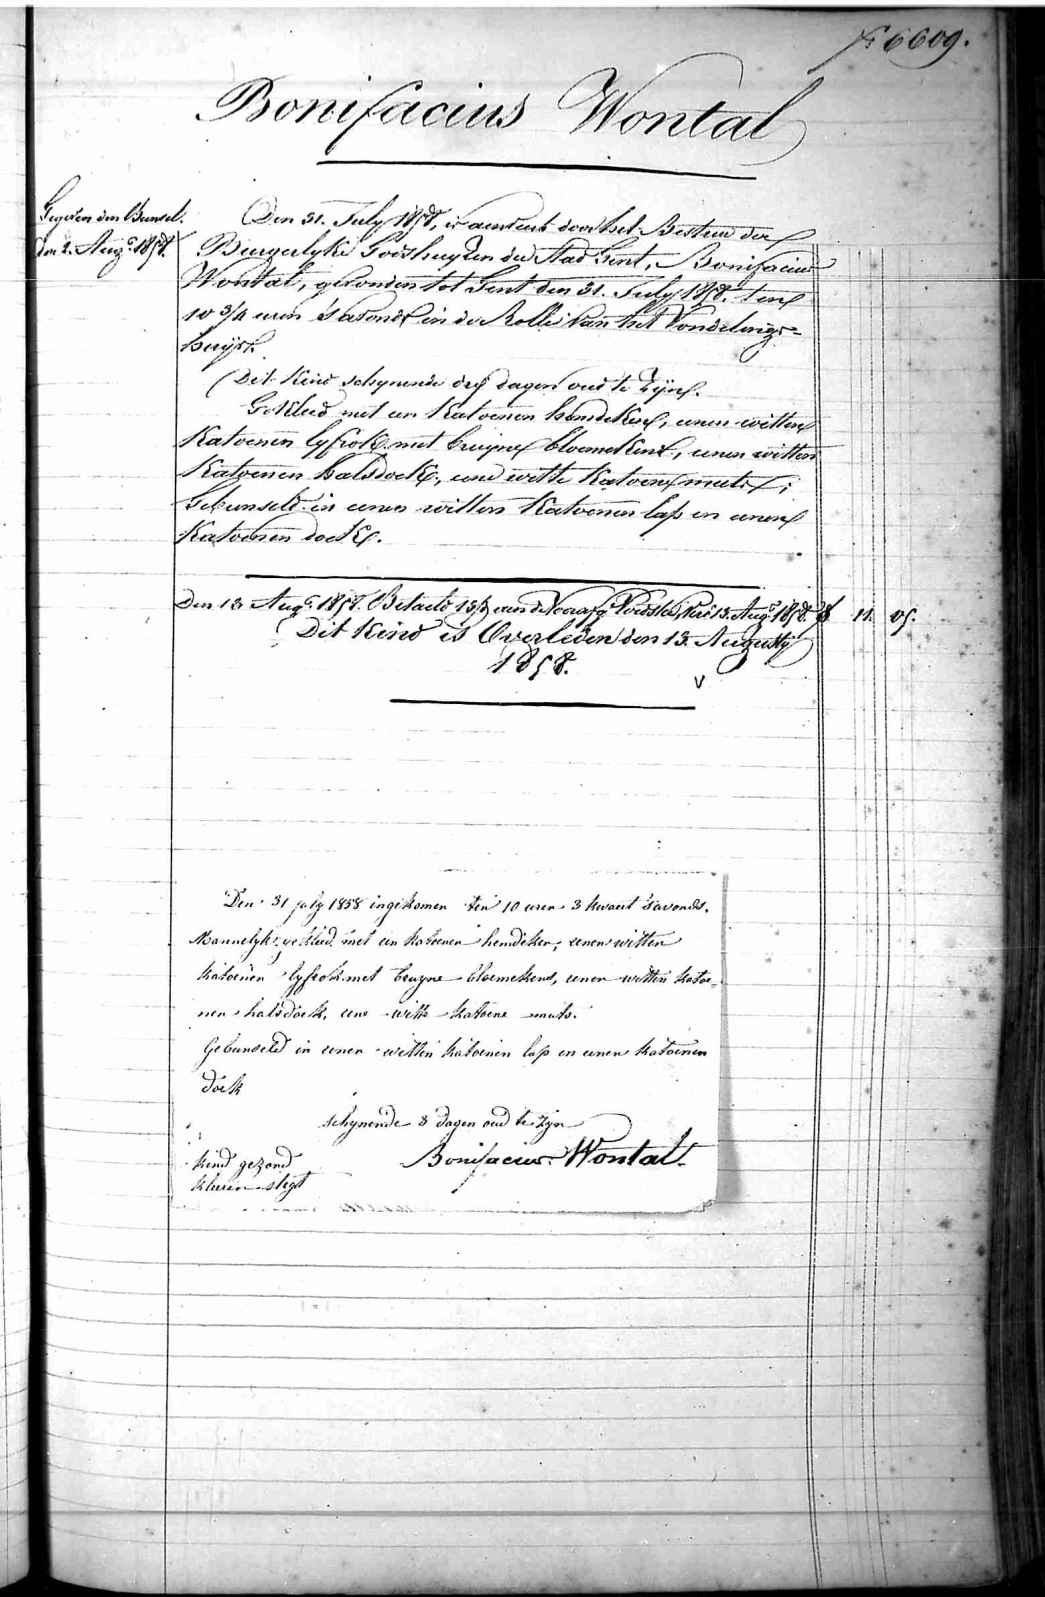 6609.
Bonifacius Wontal
Gegeven den Bunsel.
Den 2. Augs. 1858.
Den 31. July 1858, is aenveert door het Bestuur der
Burgerlyke Godshuyzen der Stad Gent, Bonifacius
Wontal, gevonden tot Gent den 31. July 1858. ten
10 3/4 uren 's avonds in de Rolle van het Vondelings=
huys.
Dit Kind schynende dry dagen oud te zyn.
Gekleed met een Katoenen hemdeken, eenen witten
Katoenen lyfrok met bruyne bloemekens, eenen witten
Katoenen halsdoek, eene witte Katoene muts;
Gebunseld in eenen witten Katoenen lap en eenen
Katoenen doek.
Den 13 Augs. 1858. Betaeld aen de 13. Augs. 1858. 11. 05.
Dit Kind is Overleden den 13. Augusty
1858.
Den 31 july 1858 ingekomen ten 10 uren 3 kwaert s'avonds.
Mannelyk, gekleed met een katoenen hemdeken, eenen witten
katoenen lyfrok met bruyne bloemekens, eenen witten katoe=
nen halsdoek, eene witte katoene muts.
Gebunseld in eenen witten katoenen lap en eenen katoenen
doek
schynende 3 dagen oud te zyn
Bonifacius Wontal.
Kind gezond
kleeren slegt